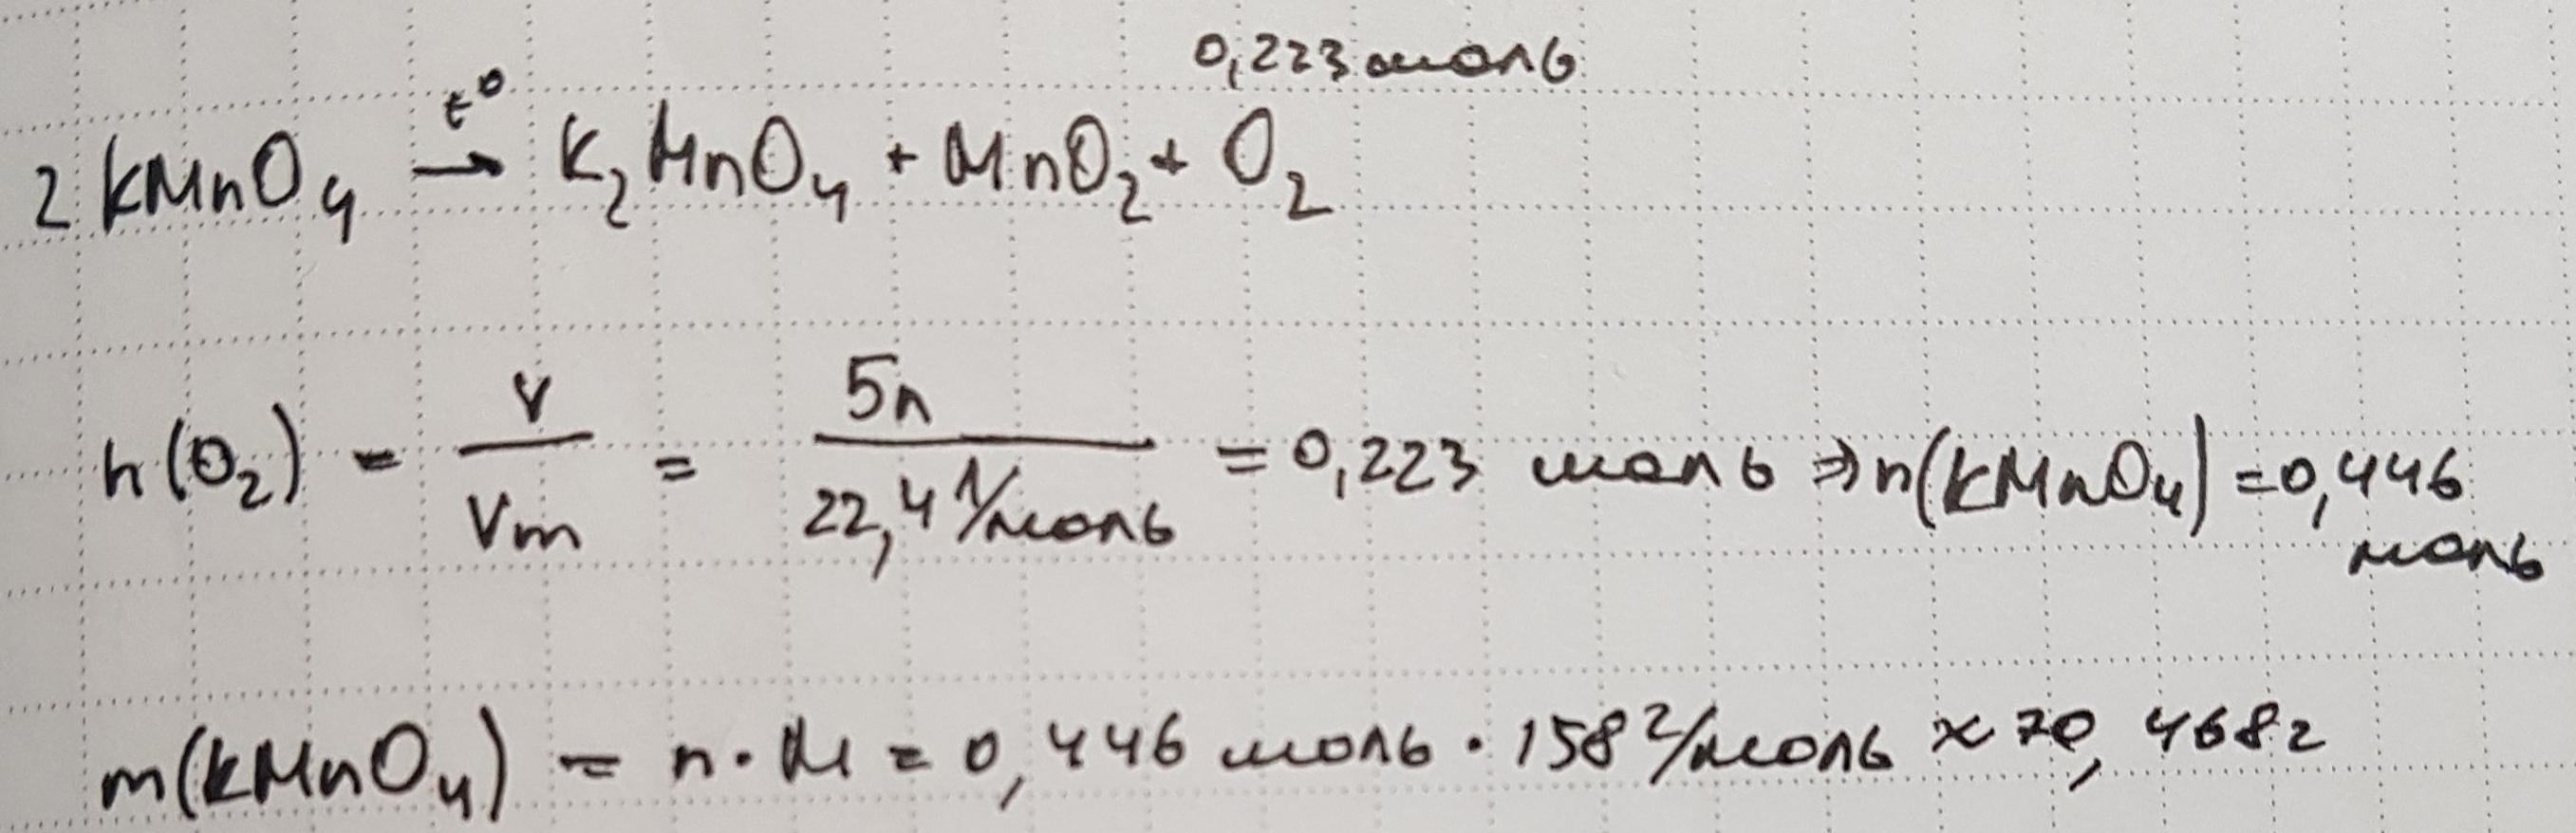 0,223 моль
2 KMnO₄ →(t⁰) K₂MnO₄ + MnO₂ + O₂
n(O₂) = V/Vm = 5л/22,4 л/моль = 0,223 моль ⇒ n(KMnO₄) = 0,446
моль
m(KMnO₄) = n · M = 0,446 моль · 158 г/моль ≈ 70,468г